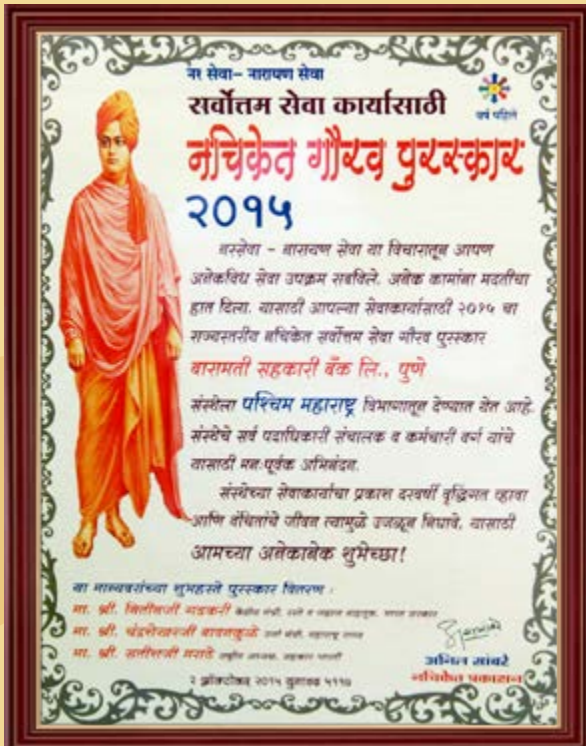 नर सेवा- नारायण सेवा
सर्वोत्तम सेवा कार्यासाठी
वर्ष पहिले
नचिकेत गौरव पुरस्कार
२०१५
नरसेवा - नारायण सेवा या विचारातून आपण
अनेकविध सेवा उपक्रम राबविले. अनेक कामांना मदतीचा
हात दिला. यासाठी आपल्या सेवाकार्यासाठी २०१५ चा
राज्यस्तरीय नचिकेत सर्वोत्तम सेवा गौरव पुरस्कार
बारामती सहकारी बँक लि., पुणे
संस्थेला पश्चिम महाराष्ट्र विभागातून देण्यात येत आहे.
संस्थेचे सर्व पदाधिकारी संचालक व कर्मचारी वर्ग यांचे
यासाठी मनःपूर्वक अभिनंदन.
संस्थेच्या सेवाकार्याचा प्रकाश दरवर्षी वृद्धिंगत व्हावा
आणि वंचितांचे जीवन त्यामुळे उजळून निघावे. यासाठी
आमच्या अनेकानेक शुभेच्छा!
या मान्यवरांच्या शुभहस्ते पुरस्कार वितरण :
मा. श्री. नितीनजी गडकरी
मा. श्री. चंद्रशेखरजी बावनकुळे
मा. श्री. सतीशजी मराठे
अनिल सांबरे
नचिकेत प्रकाशन
२ ऑक्टोबर २०१५ युगाब्द ५११७